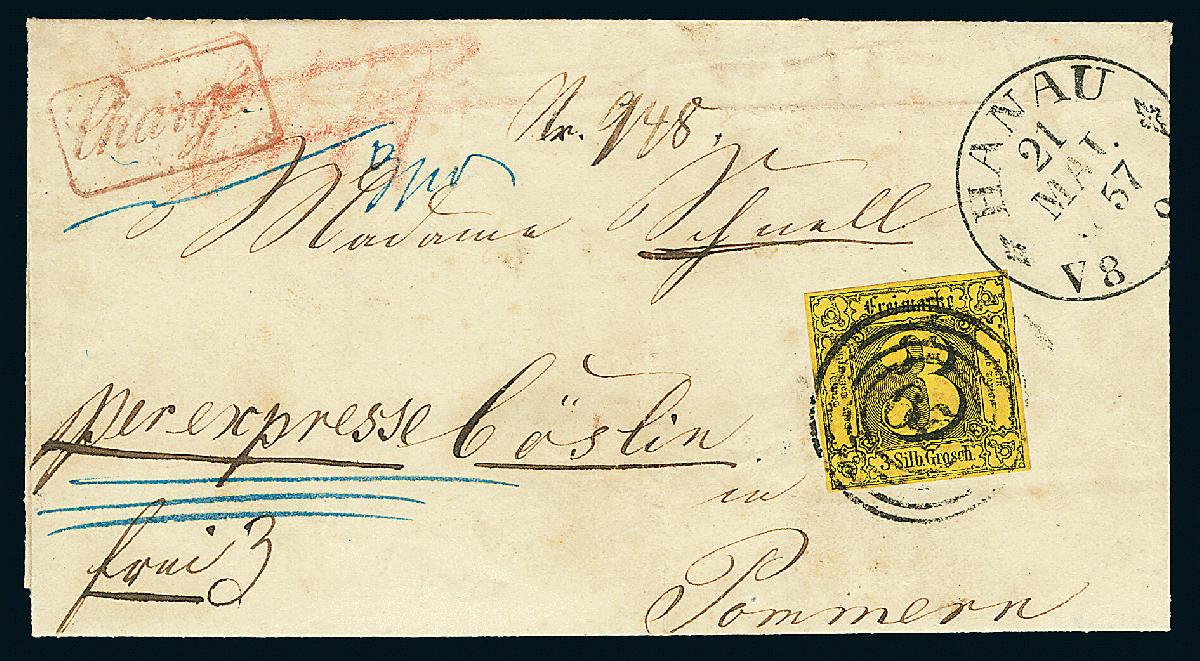 Chargé
Nr. 948.
HANAU
21
MAI.
57
V8
Madame Schnell
Freimarke
3
3 Silb. Grosch.
per expresse Cöslin
in
frei 3
Pommern